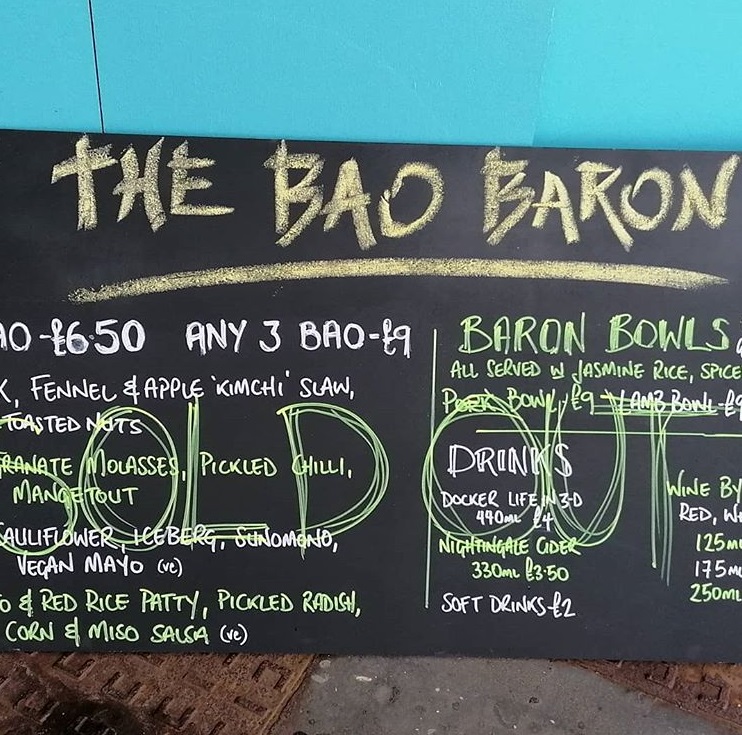 THE BAO BARON
AO -£6.50 ANY 3 BAO-£9
K, FENNEL & APPLE 'KIMCHI' SLAW,
TOASTED NUTS
GRANATE MOLASSES, PICKLED CHILLI,
MANGETOUT
CAULIFLOWER, ICEBERG, SUNOMONO,
VEGAN MAYO (ve)
O & RED RICE PATTY, PICKLED RADISH,
CORN & MISO SALSA (ve)
SOLD OUT
BARON BOWLS
ALL SERVED W JASMINE RICE, SPICE
PORK BOWL-£9 LAMB BOWL-£9
DRINKS
DOCKER LIFE IN 3-D
440ml £4
NIGHTINGALE CIDER
330ml £3.50
SOFT DRINKS-£2
WINE BY
RED, WH
125ml
175ml
250ml